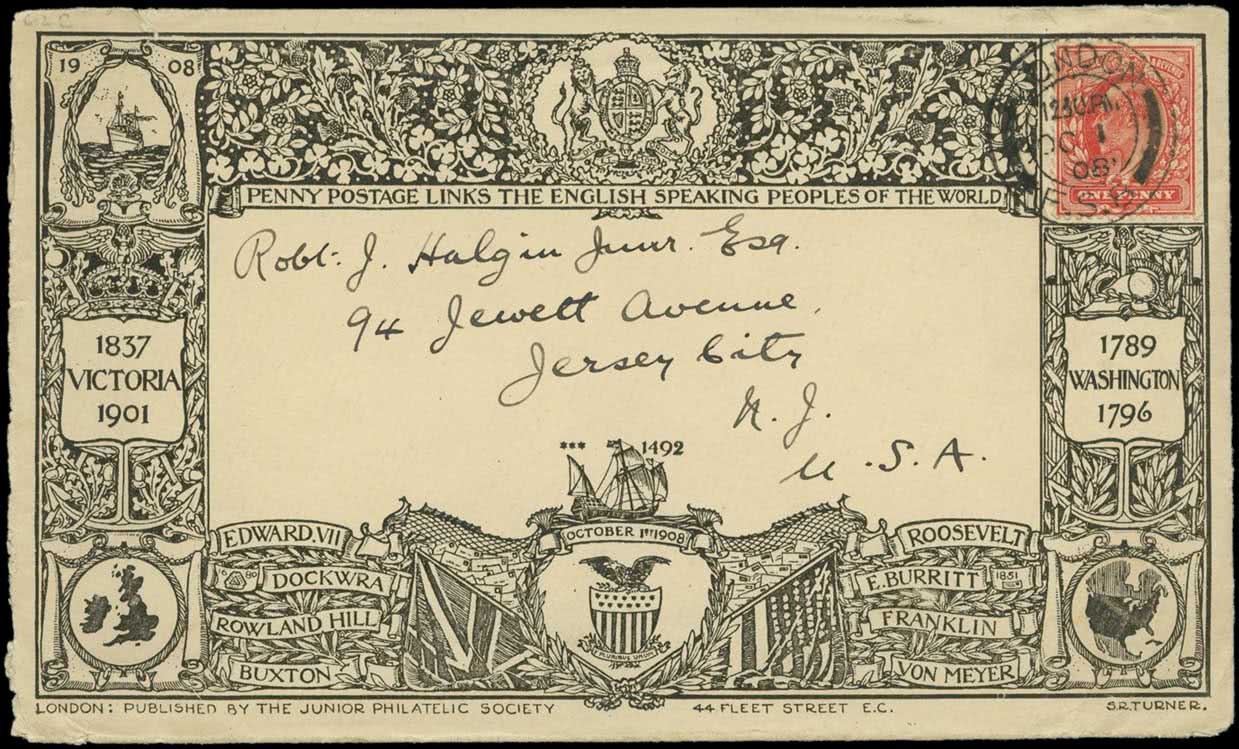 19 08
PENNY POSTAGE LINKS THE ENGLISH SPEAKING PEOPLES OF THE WORLD
LONDON
OC 1
08
E.S.P.
REVENUE
ONE PENNY
Robt. J. Halgin Junr. Esq.
94 Jewett Avenue,
Jersey City
N. J.
U.S.A.
1837
VICTORIA
1901
1789
WASHINGTON
1796
*** 1492
OCTOBER 1ST 1908
PLURIBUS UNUM
EDWARD.VII
DOCKWRA
80
ROWLAND HILL
BUXTON
ROOSEVELT
E.BURRITT 1851
FRANKLIN
VON MEYER
LONDON: PUBLISHED BY THE JUNIOR PHILATELIC SOCIETY 44 FLEET STREET E.C. S.R.TURNER.